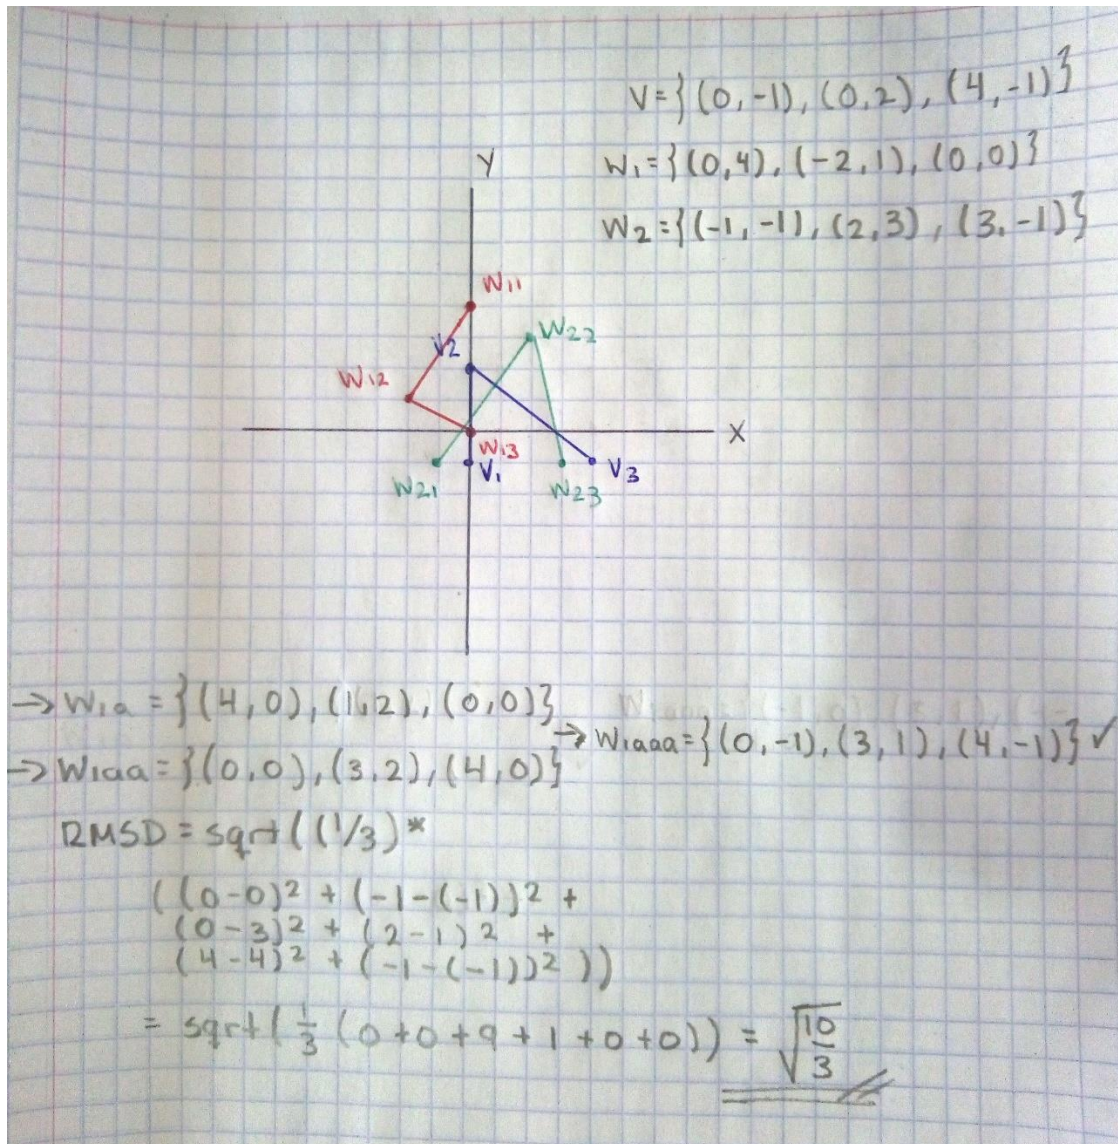 V={(0,-1),(0,2),(4,-1)}
W₁={(0,4),(-2,1),(0,0)}
W₂={(-1,-1),(2,3),(3,-1)}
Y
W₁₁
V₂
W₂₂
W₁₂
X
W₁₃
V₁
V₃
W₂₁
W₂₃
→ W₁ₐ = {(4,0),(1,2),(0,0)}
→ W₁ₐₐₐ={(0,-1),(3,1),(4,-1)}✓
→ W₁ₐₐ={(0,0),(3,2),(4,0)}
RMSD = sqrt((1/3)*
((0-0)² + (-1-(-1))² +
(0-3)² + (2-1)² +
(4-4)² + (-1-(-1))²))
= sqrt(1/3 (0+0+9+1+0+0)) = √10/3